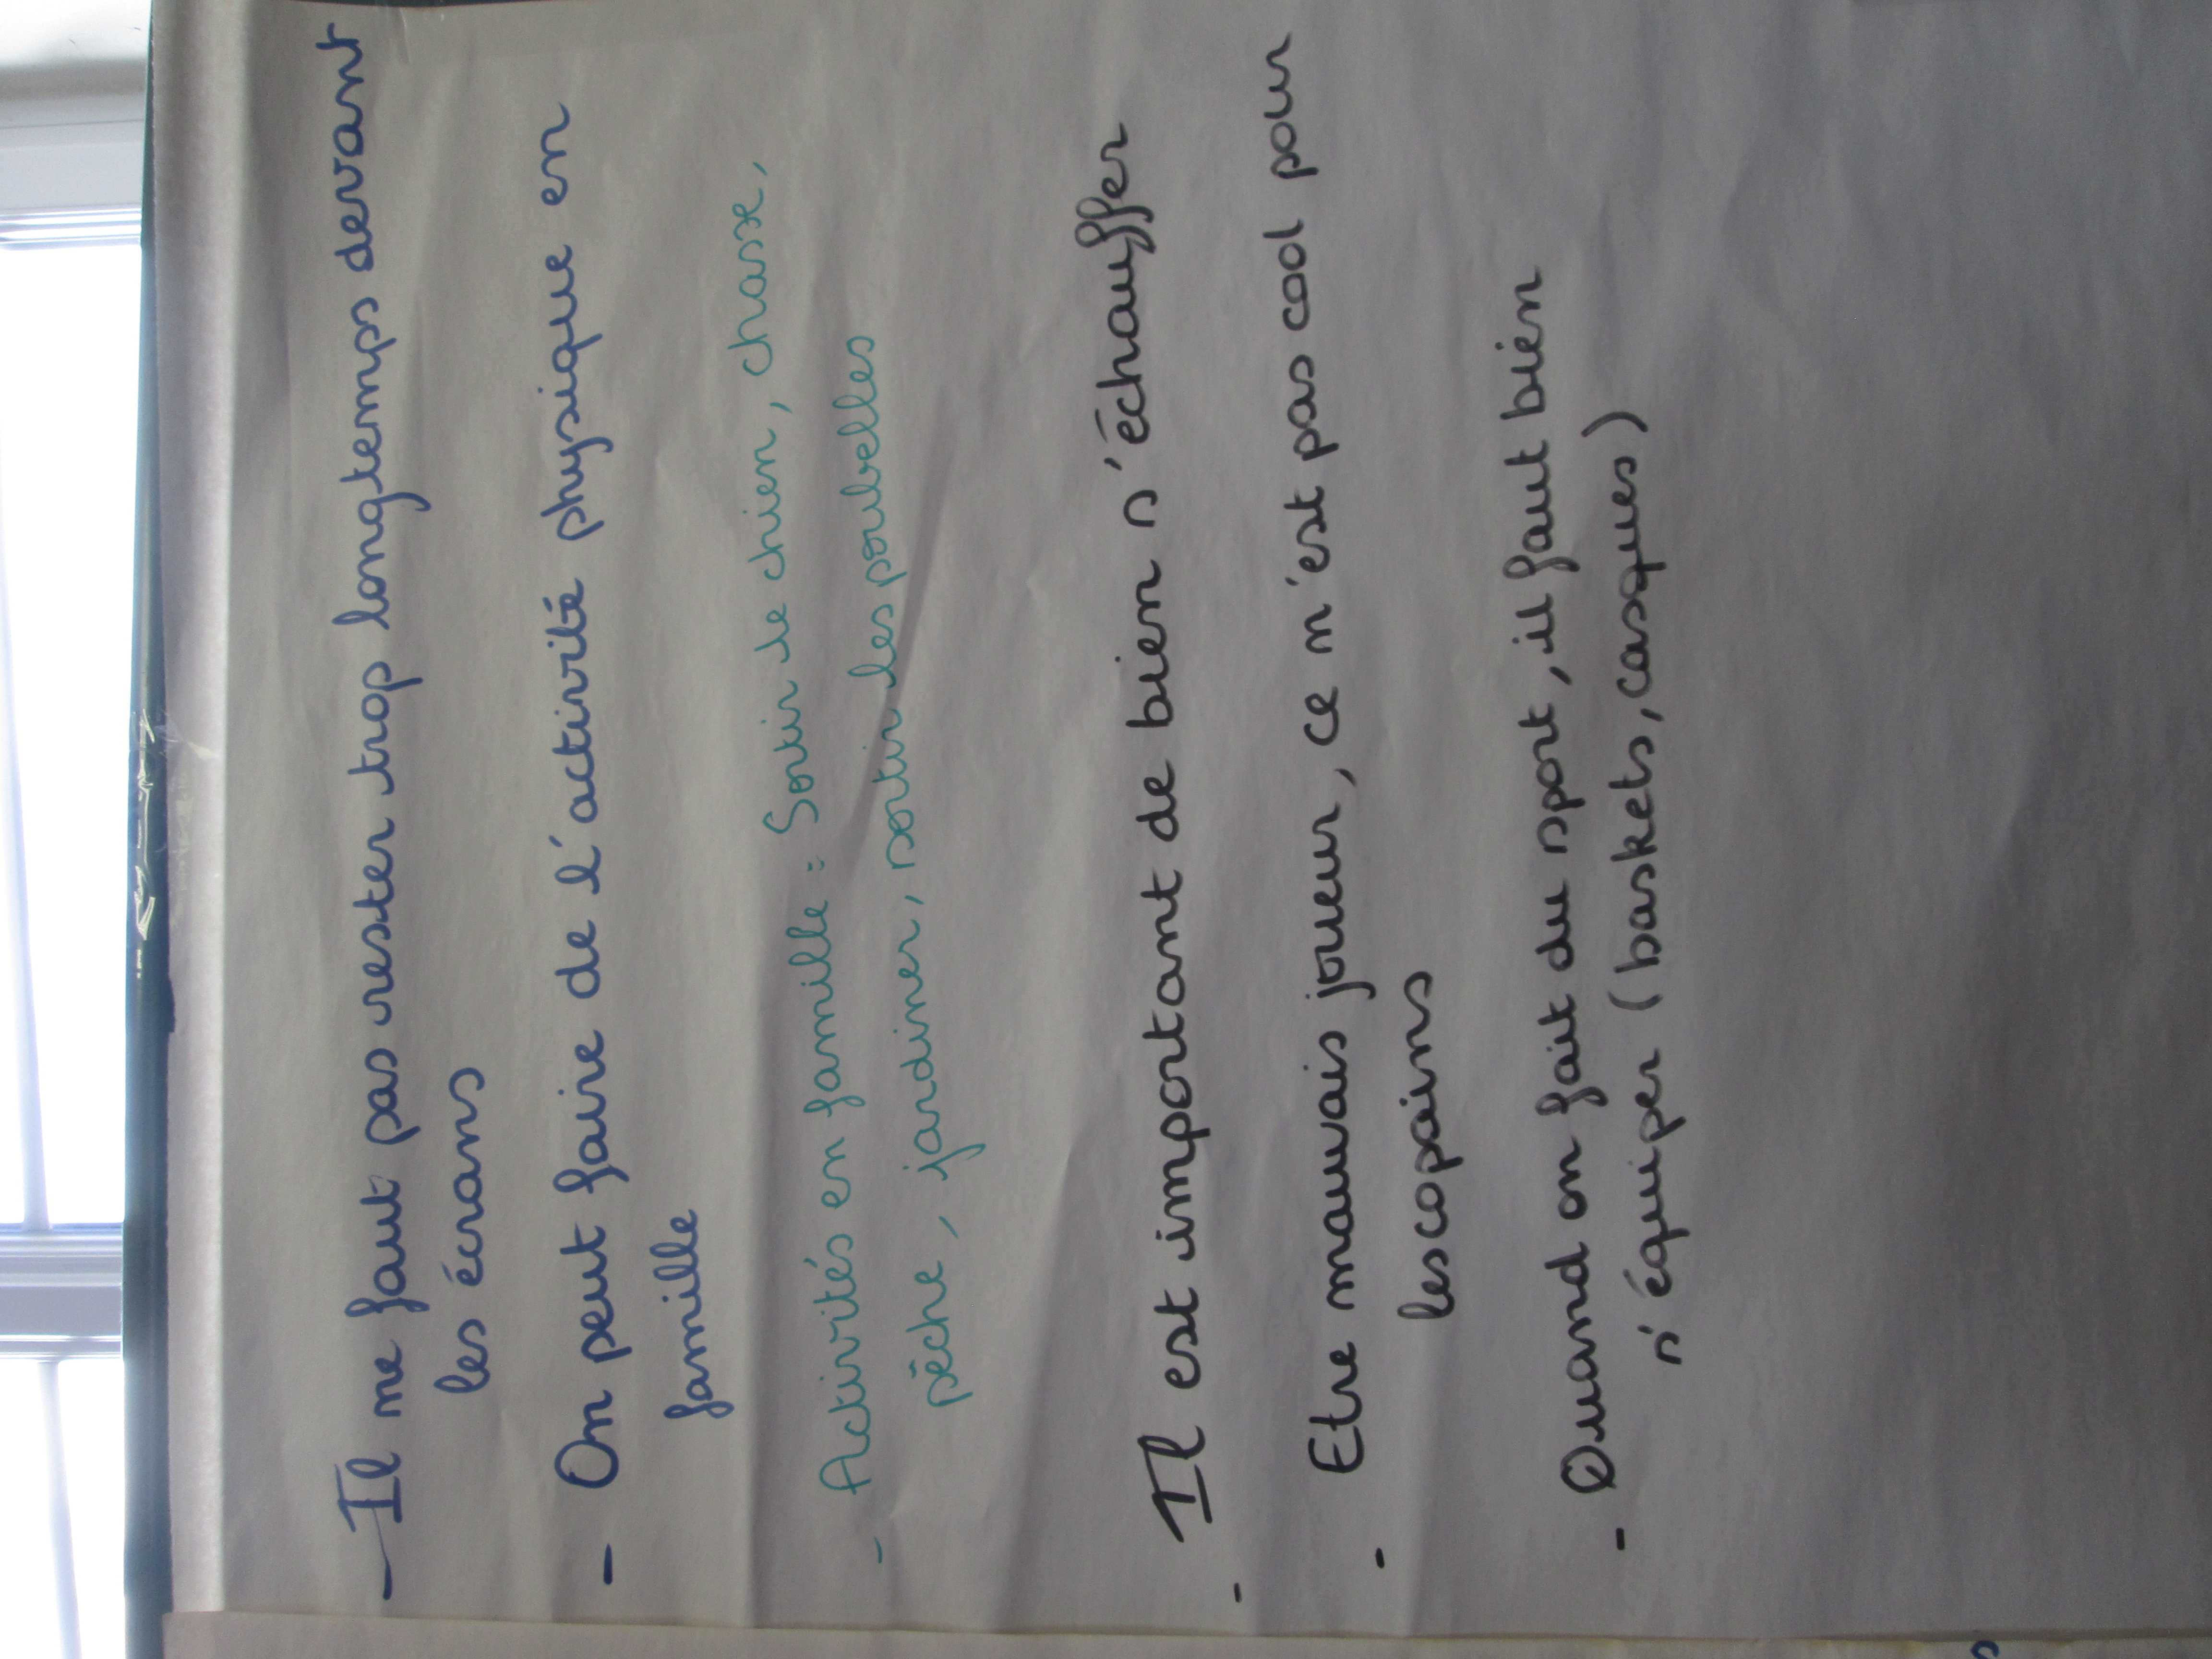 - Il ne faut pas rester trop longtemps devant
les écrans
- On peut faire de l'activité physique en
famille
- Activités en famille : Sortir le chien, chasse,
pêche, jardiner, sortir les poubelles
- Il est important de bien s'échauffer
- Etre mauvais joueur, ce n'est pas cool pour
les copains
- Quand on fait du sport, il faut bien
s'équiper (baskets, casques)